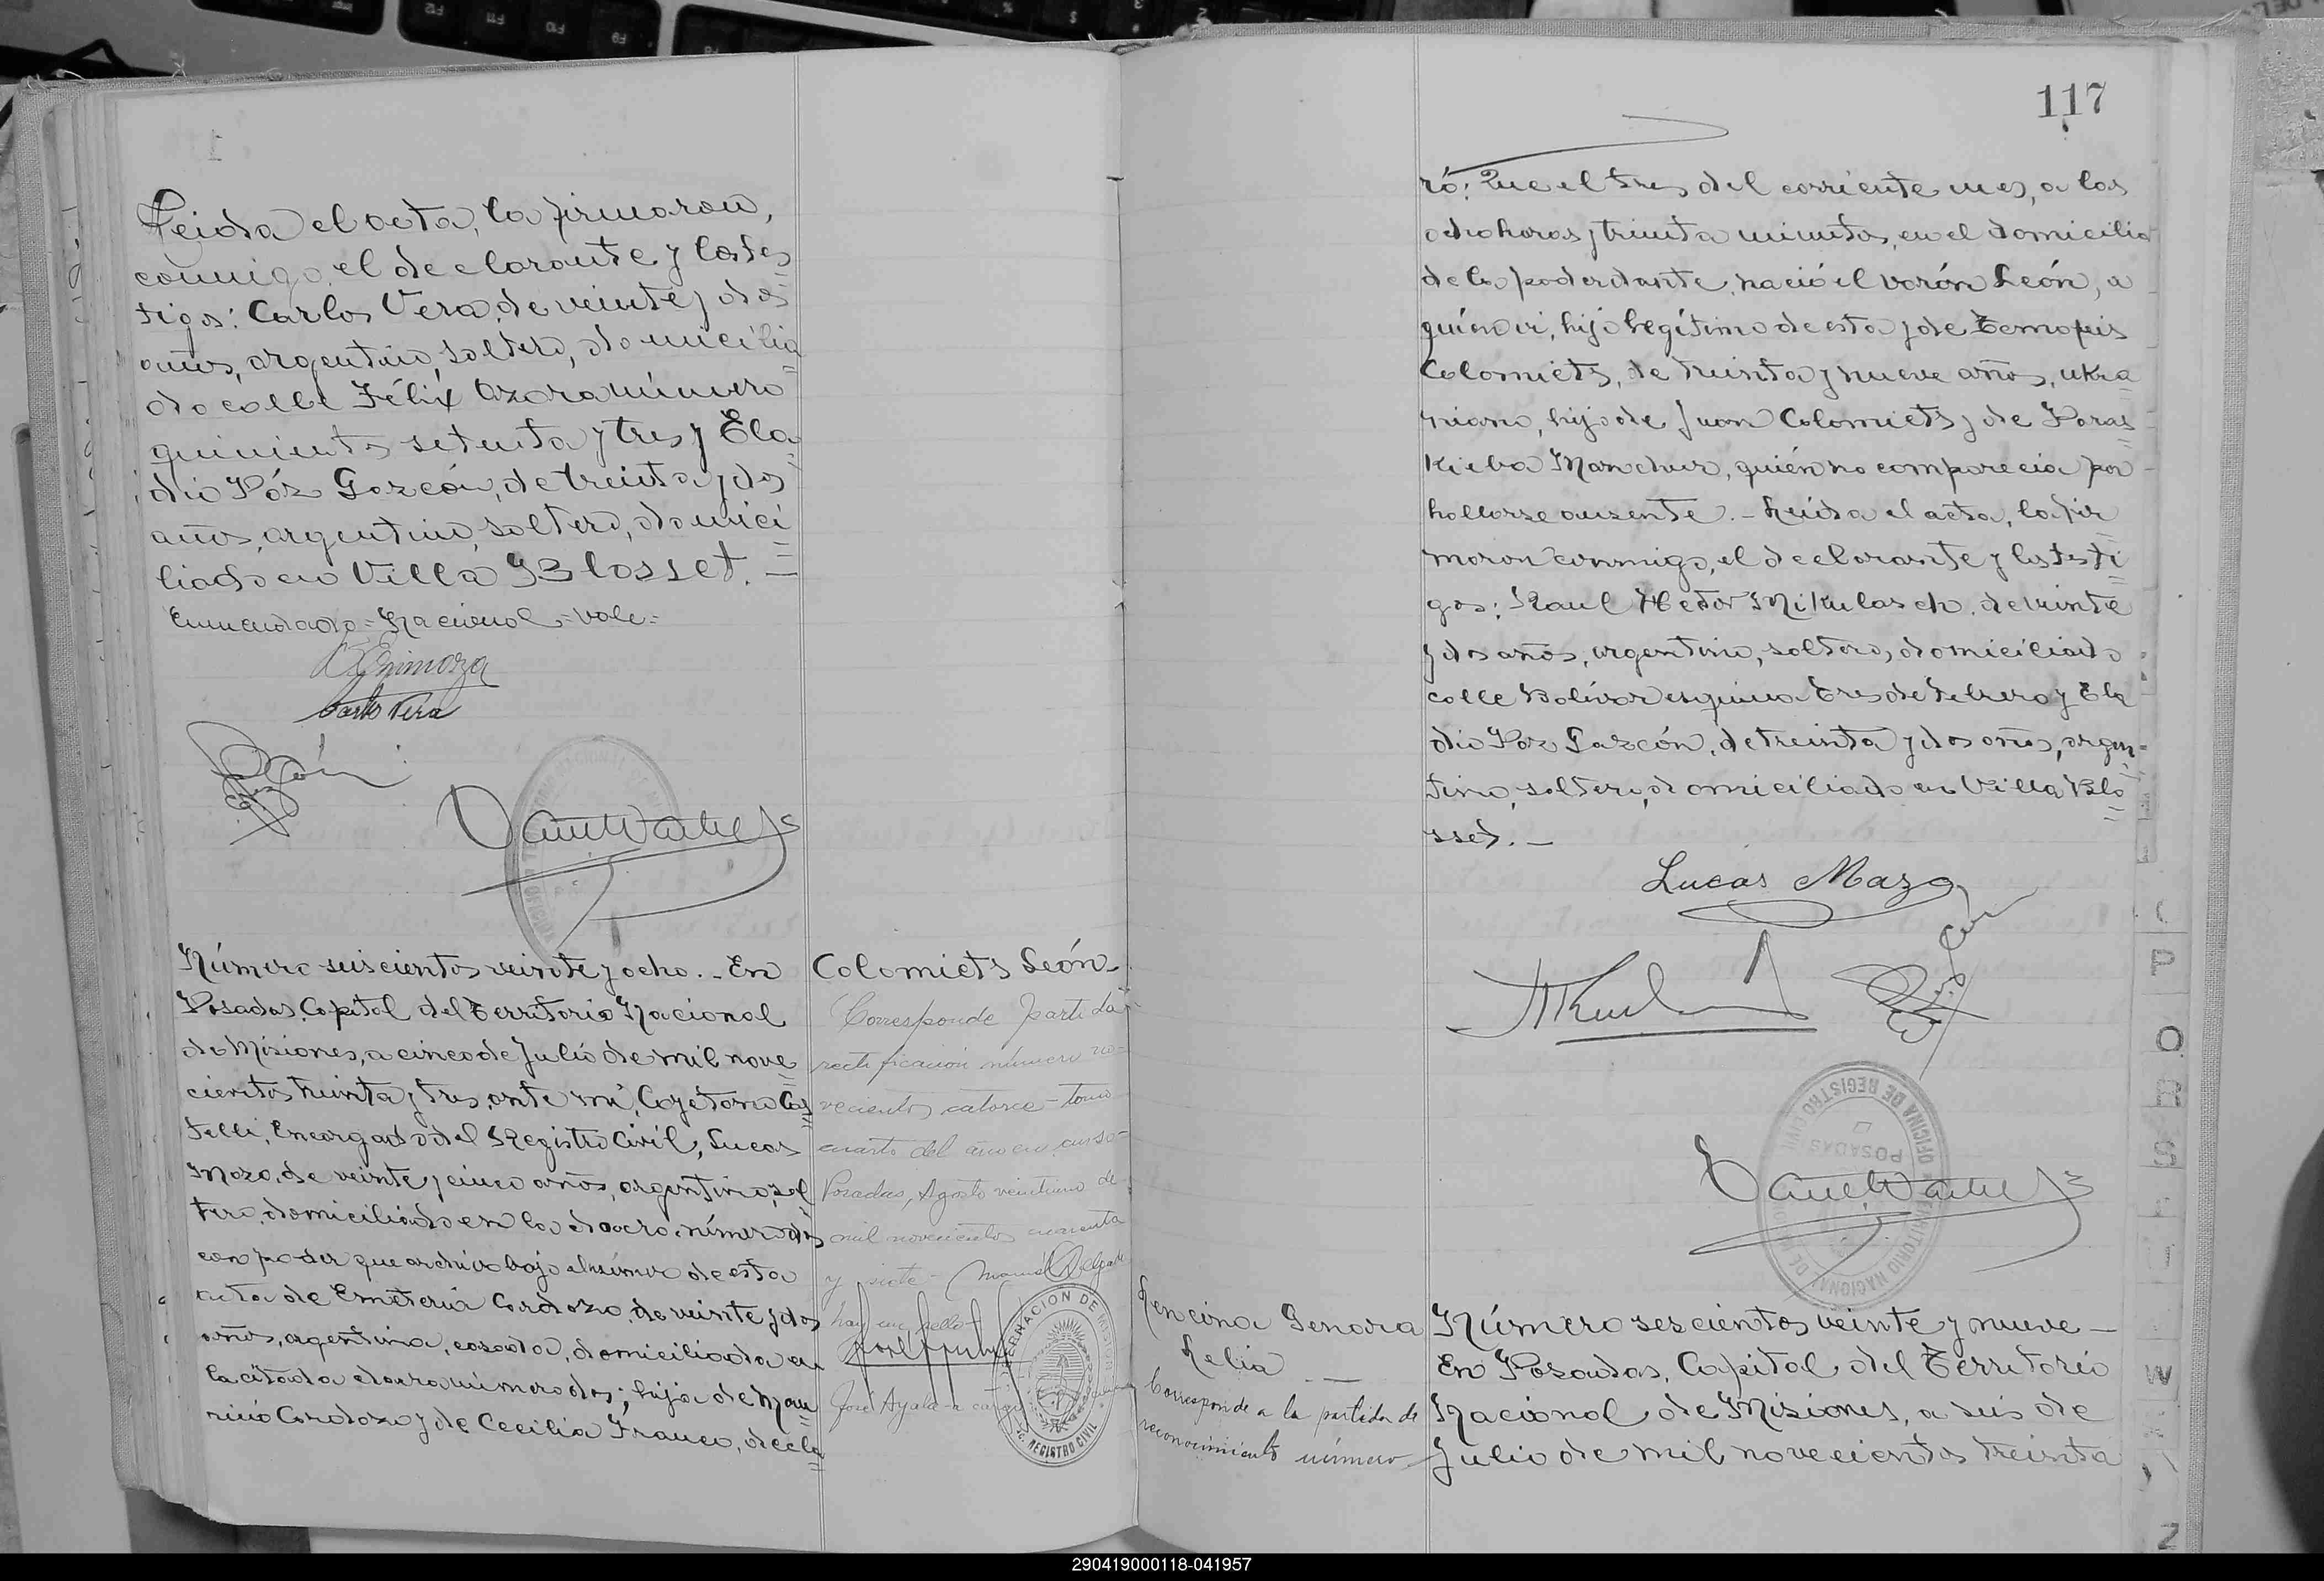 Leida el acta, la firmaron,
conmigo, el declarante y los tes
tigos: Carlos Vera, de veinte y dos
años, argentino, soltero, domicilia
do calle Félix Azara número
quinientos setenta y tres y Ela
dio Páz Garzón, de treinta y dos
años, argentino, soltero, domici
liado en Villa Blosset. —
Enmendado = Nacional = vale =
Carlos Vera
Número seiscientos veinte y ocho. - En
Posadas, Capital del Territorio Nacional
de Misiones, a cinco de Julio de mil nove
cientos treinta y tres, ante mí, Cayetano Cas
telli, Encargado del Registro Civil, Lucas
Mazo, de veinte y cinco años, argentino, sol
tero, domiciliado en la chacra número dos
con poder que archivo bajo el número de esta
acta de Emeteria Cardozo, de veinte y dos
años, argentina, casada, domiciliada en
la citada chacra número dos; hija de Mau
ricio Cardozo y de Cecilia Franco, decla
Colomiets León
Corresponde partida
rectificación número no-
vecientos catorce - tomo
cuarto del año en curso -
Posadas, Agosto veintiuno de
mil novecientos cuarenta
y siete - Manuel Delgado
hay un sello -
José Ayala - a cargo
GOBERNACION DE MISIONES
REGISTRO CIVIL
117
ró: Que el tres del corriente mes, a las
ocho horas y treinta minutos, en el domicilio
de la poderdante, nació el varón León, a
quién vi, hijo legítimo de esta y de
Colomiets, de treinta y nueve años, ukra
niano, hijo de Juan Colomiets y de Paras
kieba Manchur, quién no comparecía por
hallarse ausente. - Leída el acta, la fir
maron conmigo, el declarante y los testi
gos: Raul Hector Mikulasch, de veinte
y dos años, argentino, soltero, domiciliado
calle Bolívar esquina Tres de Febrero y Ela
dio Paz Garzón, de treinta y dos años, argen-
tino, soltero, domiciliado en Villa Blo
sset. —
Lucas Mazo
OFICINA DE REGISTRO CIVIL
POSADAS
TERRITORIO NACIONAL DE MISIONES
Genara
Relia —
Corresponde a la partida de
reconocimiento número
Número seiscientos veinte y nueve —
En Posadas, Capital del Territorio
Nacional de Misiones, a seis de
Julio de mil novecientos treinta
P
Q
R
S
W
Z
290419000118-041957